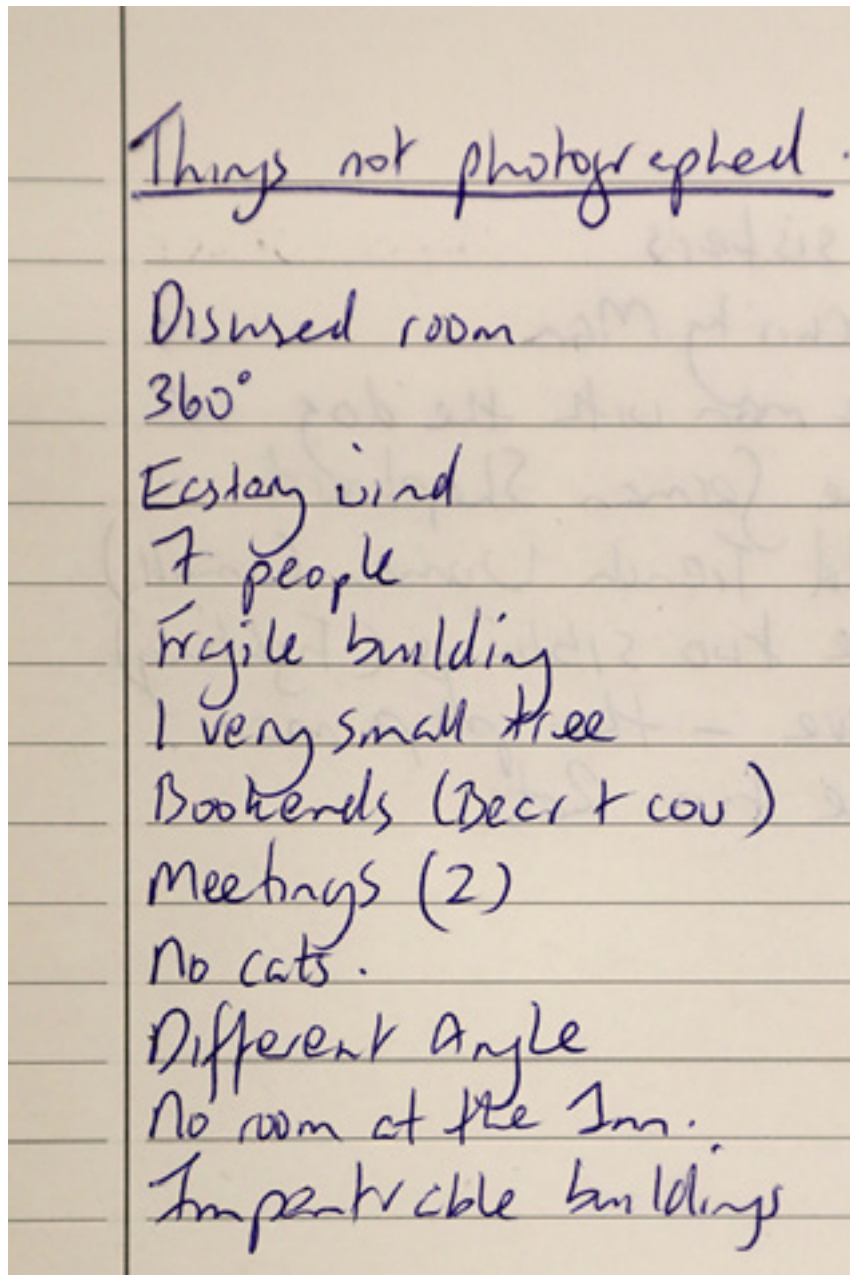 Things not photographed.
Disused room
360°
Ecstacy wind
7 people
Fragile building
1 very small tree
Bookends (Becr + cow)
Meetings (2)
No cats.
Different Angle
No room at the Inn.
Impentrable buildings
sisters
man with the dog